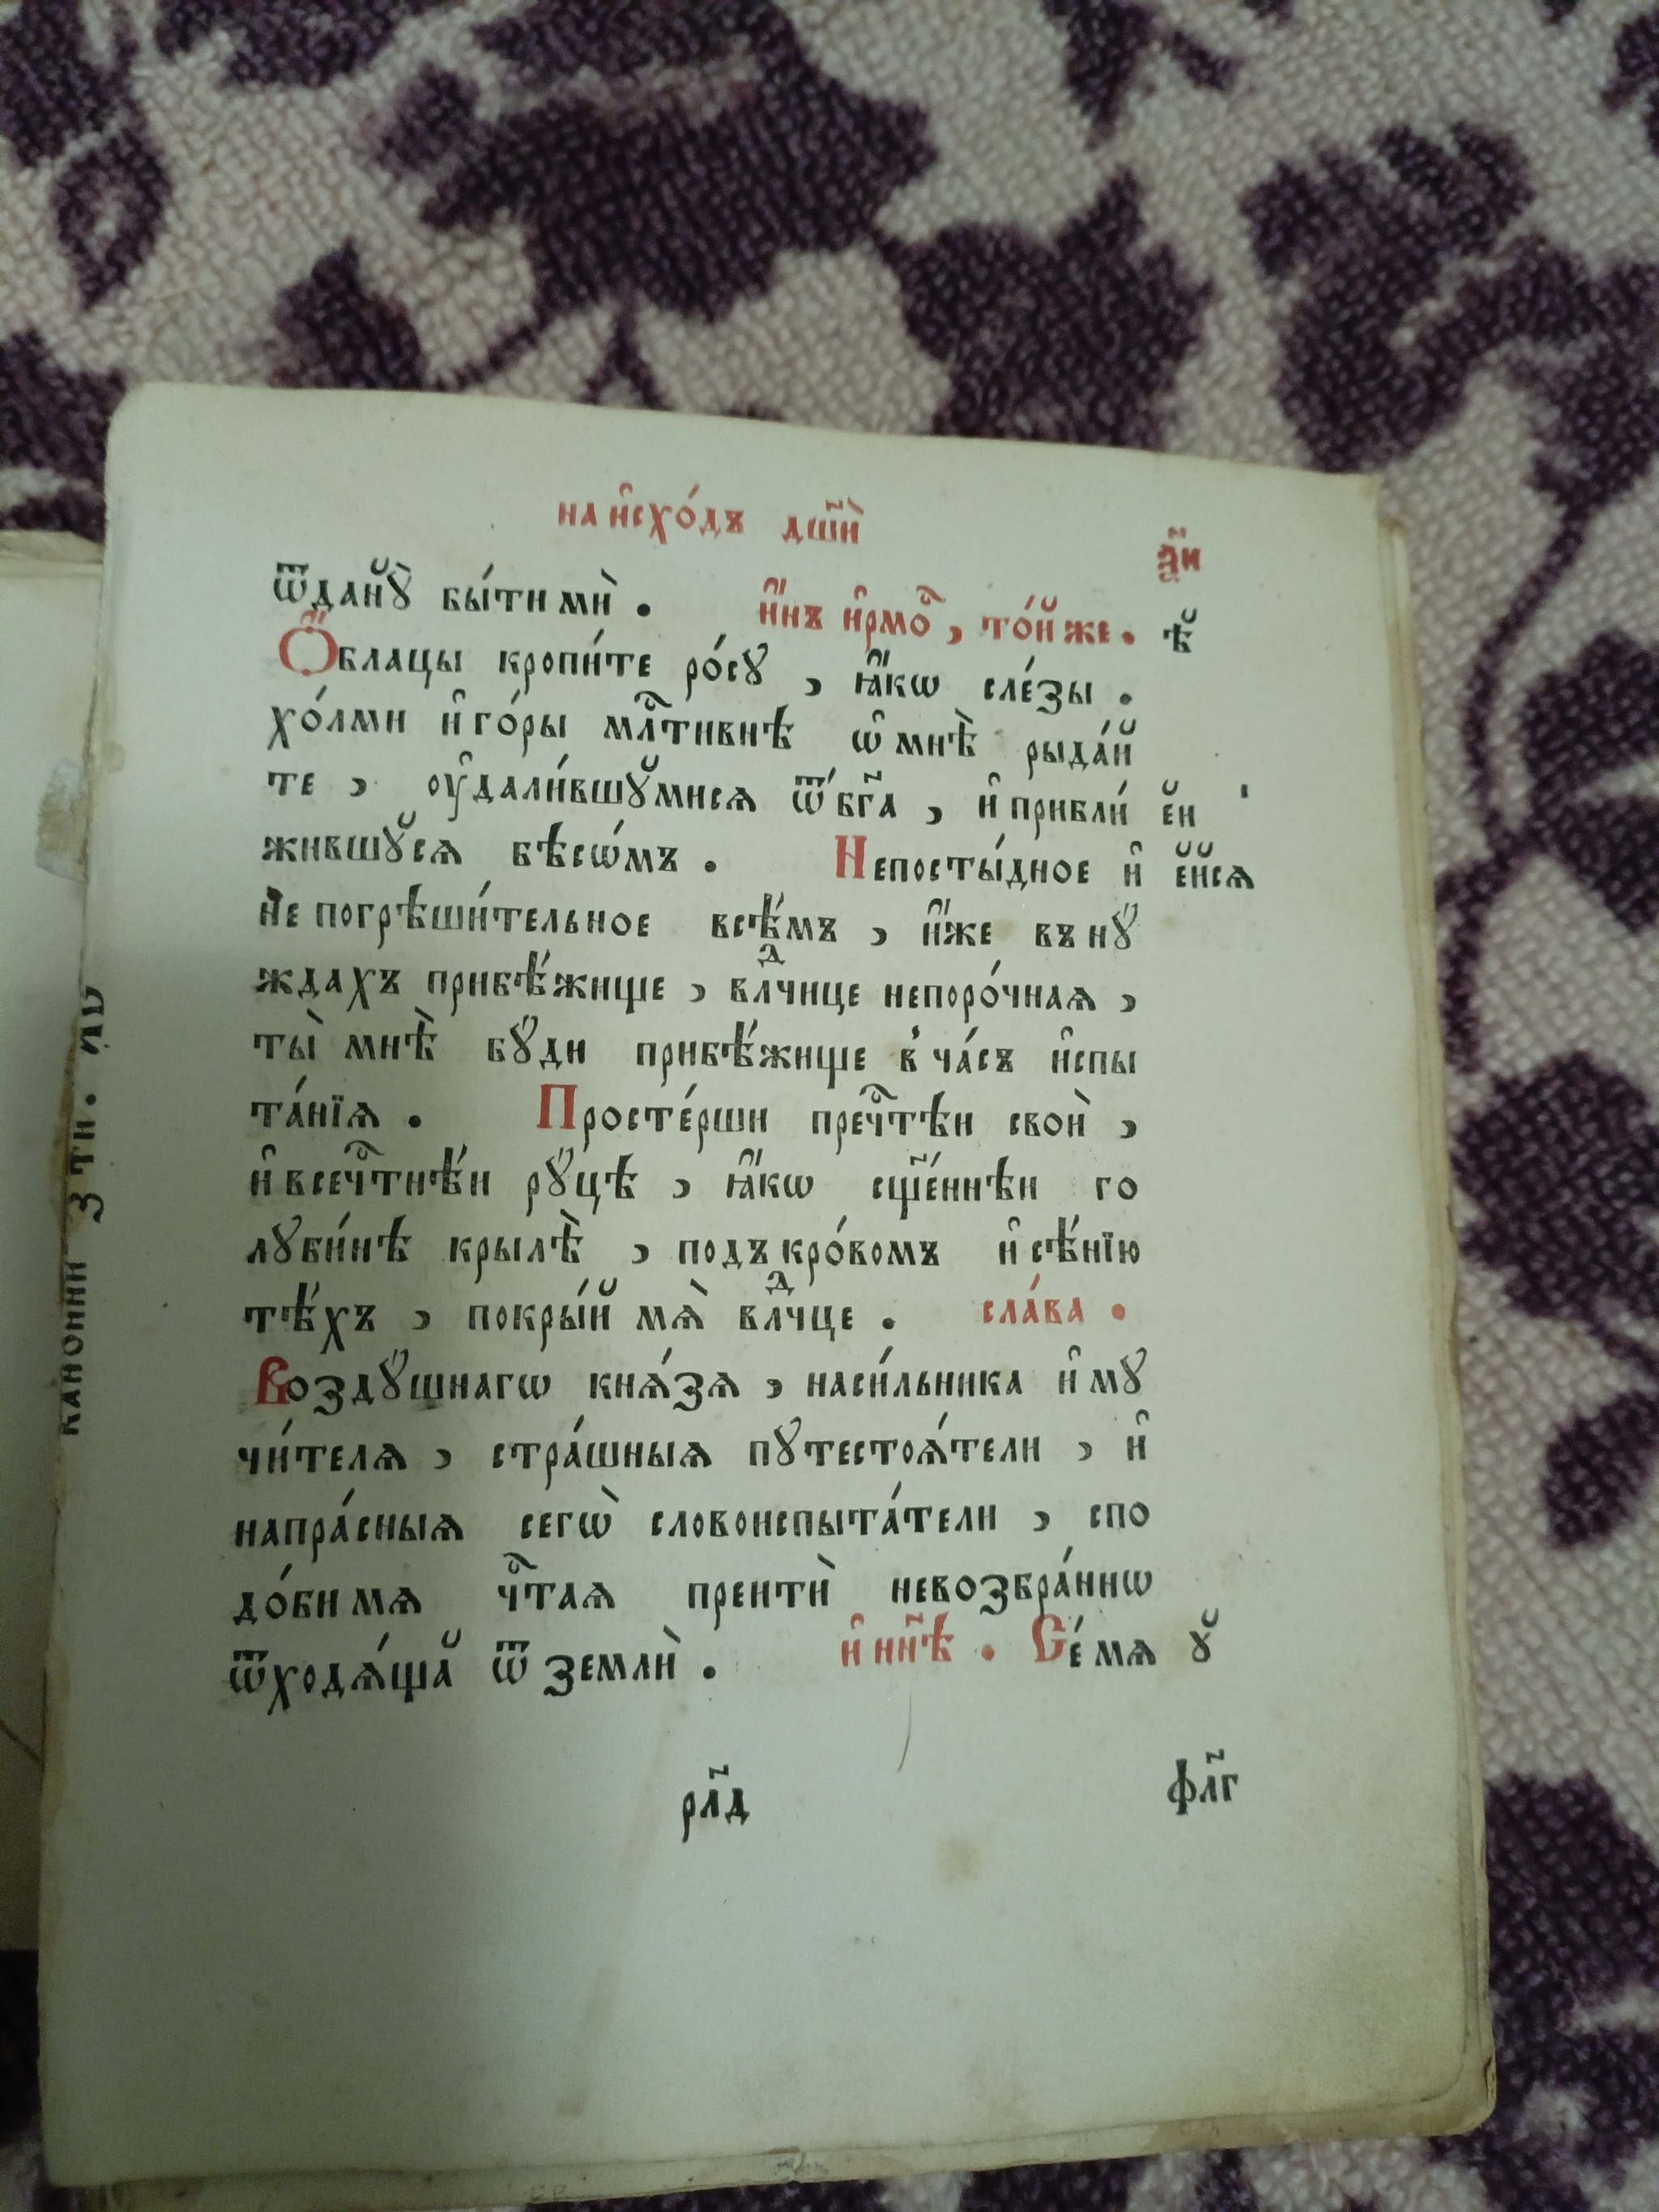 на и҆схо́дъ дш҃и̑
д҃и
ѿдану̀ бы́ти мѝ . и҆́нъ і҆рмо́с , то́йже . ѣ
Ѻ҆́блацы кропи́те ро́сꙋ , ꙗ҆́кѡ сле́зы .
хо́лми и҆ го́ры млⷭ҇тивнѣ ѡ҆ мнѣ̀ рыда́й
те , ᲂу҆дали́вшꙋмисѧ ѿ бг҃а , и҆ прибли́ ей
жившꙋсѧ бѣсѡ́мъ . Непосты́дное и҆ ейсѧ
не погрѣши́тельное всѣ́мъ , и҆́же въ нꙋ́
ждахъ прибѣ́жище , влⷣчице непоро́чнаѧ ,
ты̀ мнѣ̀ бꙋ́ди прибѣ́жище в̾ ча́съ и҆спы
та́нїѧ . Просте́рши пречⷭ҇тѣи своѝ ,
и҆ всечⷭ҇тнѣ́и рꙋ́цѣ , ꙗ҆́кѡ сщ҃е́ннѣи го
лꙋби́нѣ крылѣ̀ , подъ кро́вомъ и҆ сѣ́нїю
тѣ́хъ , покры́й мѧ̀ влⷣчце . сла́ва .
Воздꙋ́шнагѡ кнѧ́зѧ , наси́льника и҆ мꙋ
чи́телѧ , стра́шныѧ пꙋтестоѧ́тели , и҆
напра́сныѧ сегѡ̀ словоиспыта́тели , спо
до́би мѧ чⷭ҇таѧ преитѝ невозбра́ннѡ
ѿходѧ́ща ѿ землѝ . и҆ нн҃ѣ . Се́ мѧ ꙋ
рл҃д
фл҃г